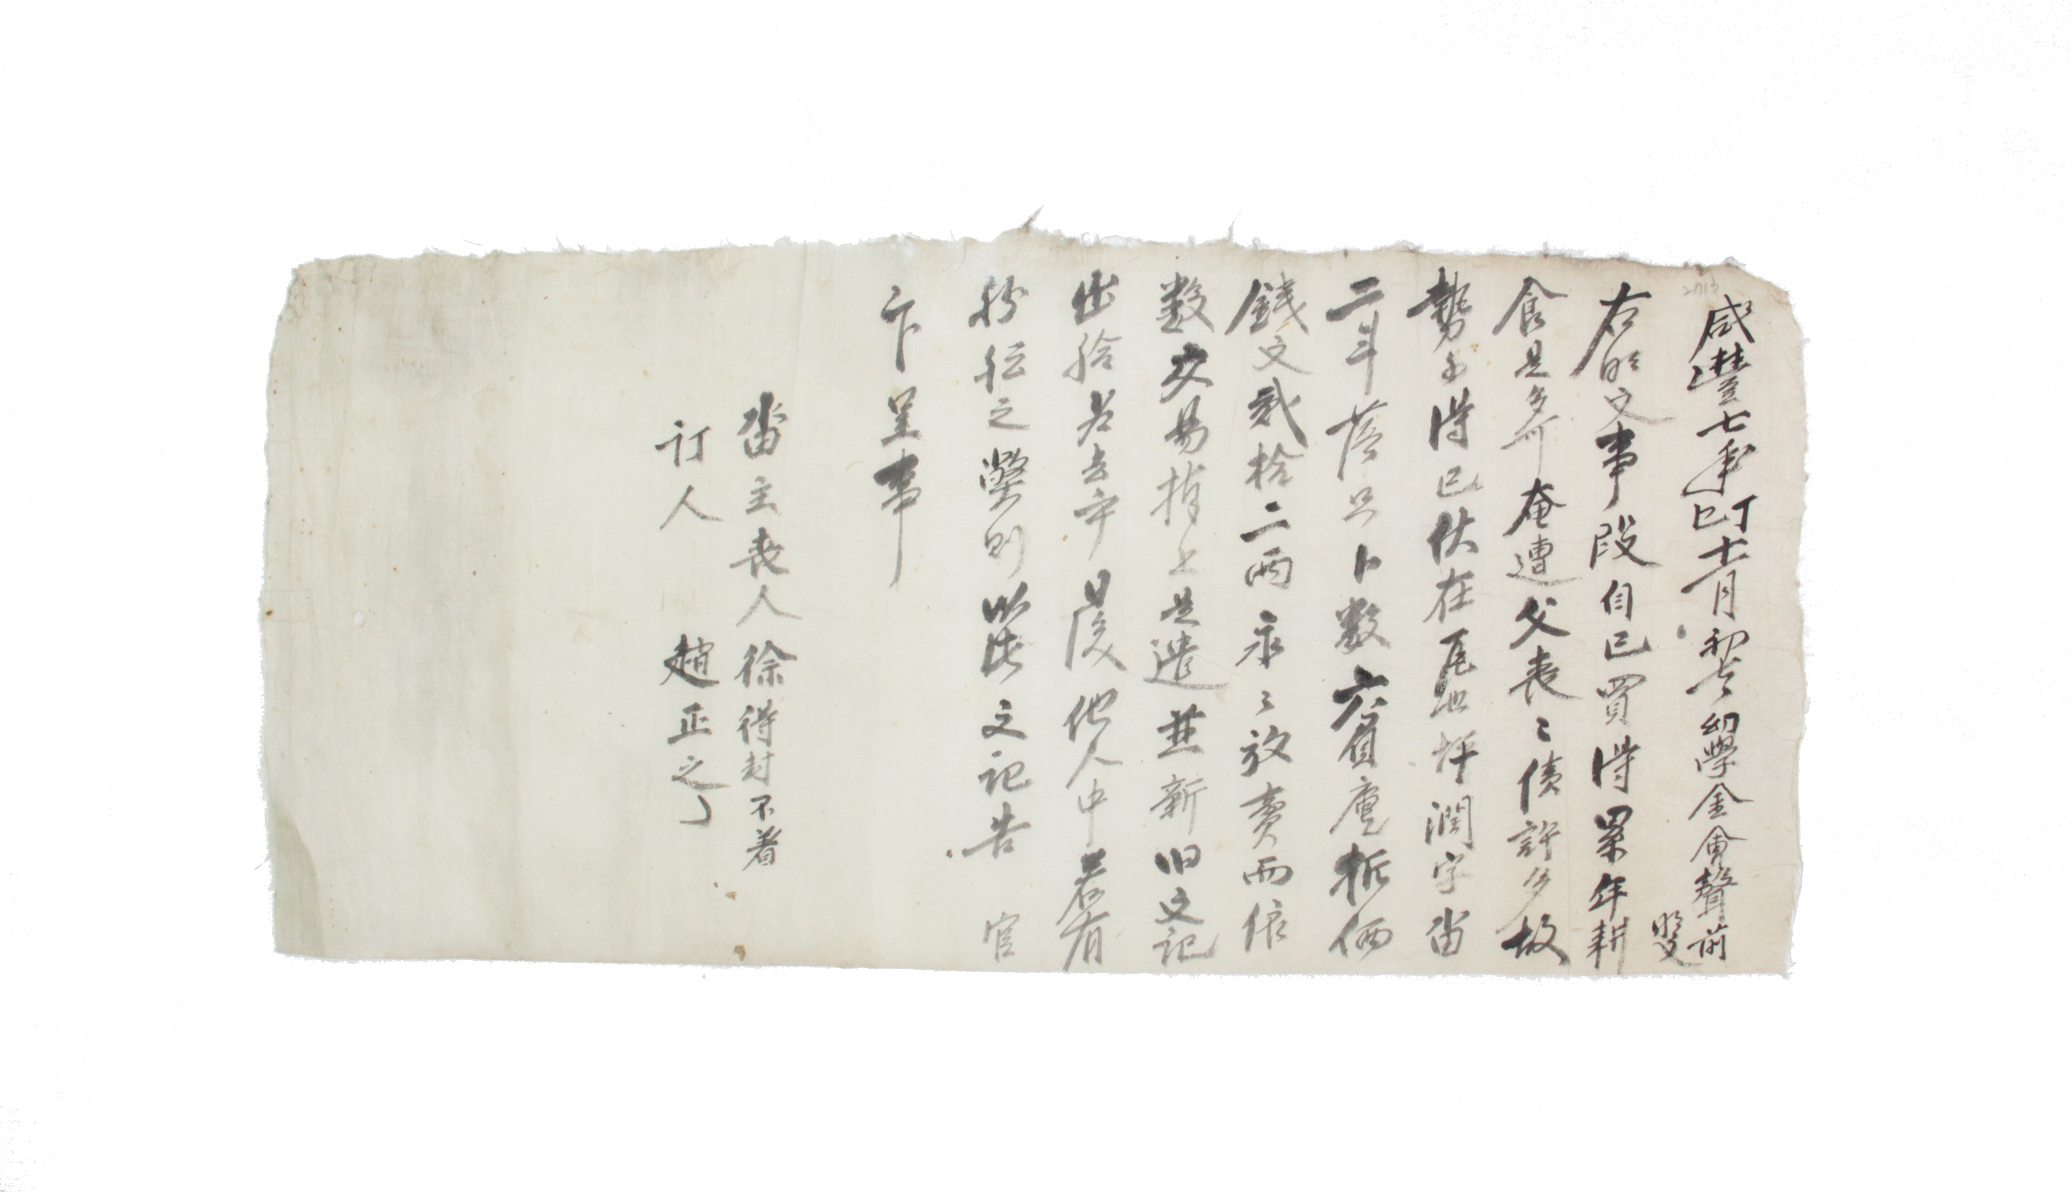 咸豐七年丁巳十一月初七日幼學金會聲前
明文
右明文事段自己買得累年耕
食是多可奄遭父喪喪債許多故
勢不得已伏在尾也坪潤字畓
二斗落只卜數六負庫折価
錢文貳拾二兩永永放賣而依
數交易捧上是遣並新旧文記
出給爲去乎日後他人中若有
移征之獘則以此文記告 官
卞呈事
畓主喪人徐得封不着
訂人 趙正之